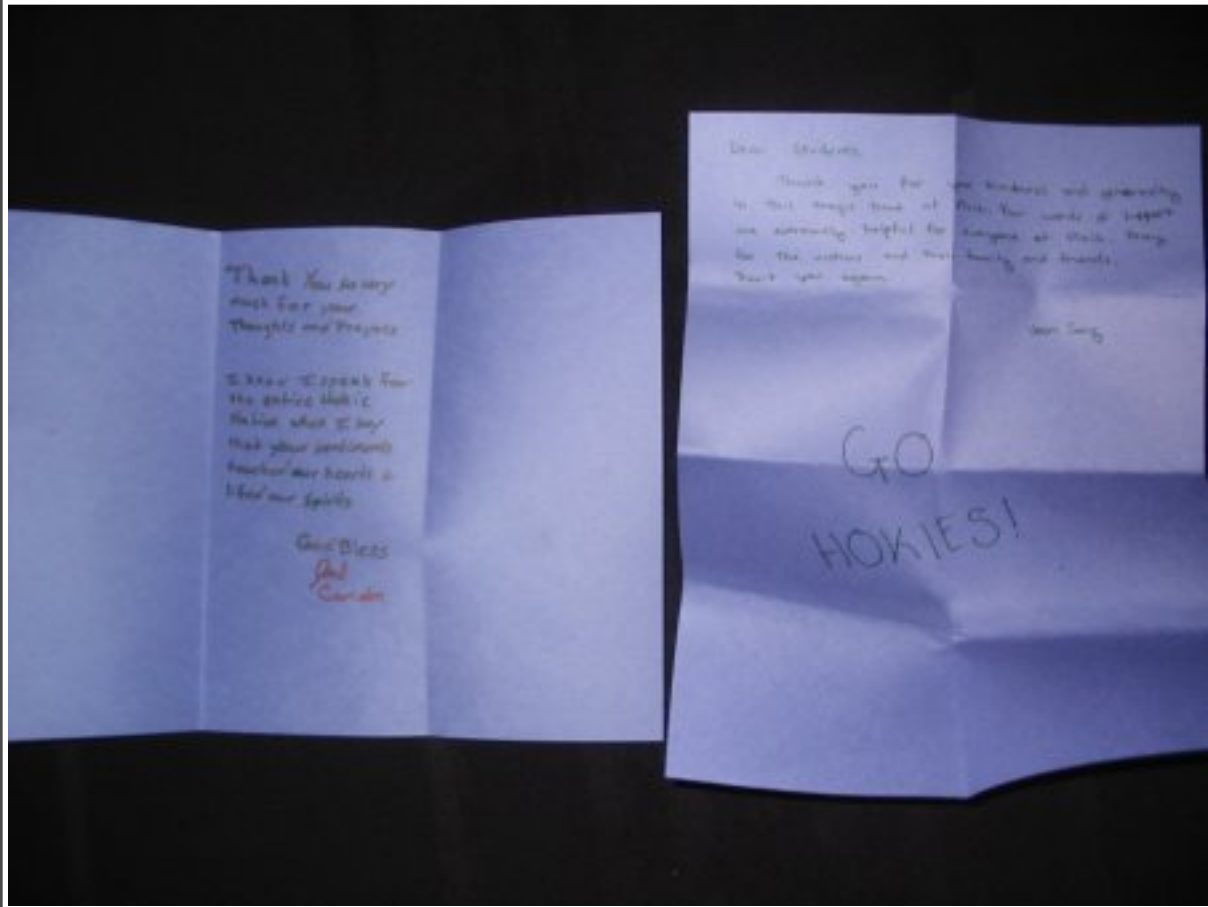 Thank You so very
much for your
Thoughts and Prayers
I know I speak for
the entire Hokie
Nation when I say
that your sentiments
touched our hearts &
lifted our spirits
God Bless
Dear Students,
Thank you for your kindness and generosity
in this tragic time at Tech. Your words of support
are extremely helpful for everyone at Tech. Pray
for the victims and their family and friends.
again.
GO
HOKIES!